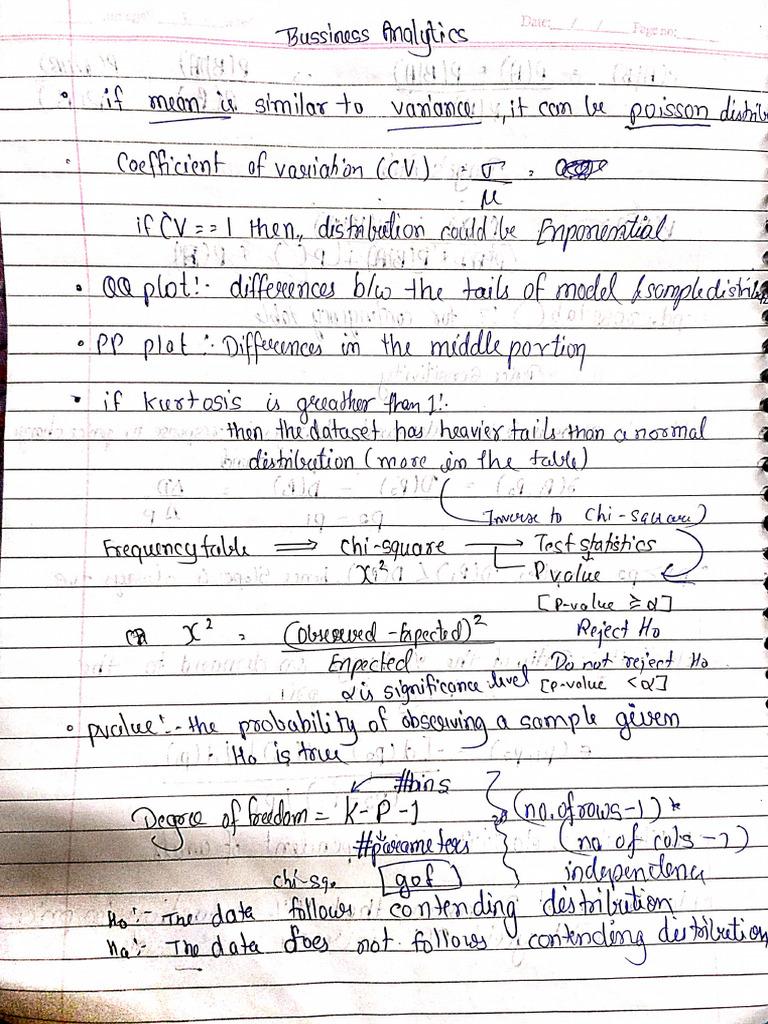 Date: / / Page no:
Bussiness Analytics
• if mean is similar to variance, it can be poisson distrib
• Coefficient of variation (CV) = σ/μ =
if CV == 1 then, distribution could be Enponential
• QQ plot:- differences b/w the tails of model & sample distrib
• PP plot :- Differences in the middle portion
• if Kurtosis is greather than 1:-
then the dataset has heavier tails than a normal
distribution (more in the table)
(Inverse to Chi-square)
Frequency table ⇒ chi-square → Test statistics
X² P value
[P-value ≥ α]
X² = (Observed - Expected)² Reject Ho
Enpected Do not reject Ho
α is significance level [p-value < α]
• pvalue:- the probability of observing a sample given
Ho is true
#bins
Degree of freedom = K-P-1 (no. of rows-1) *
#parameters (no of cols -1)
chi-sq. gof independence
Ho:- The data follows contending destribution
Ha:- The data does not follows contending destribution